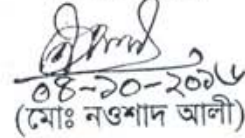 ০৪-১০-২০১৬
(মোঃ নওশাদ আলী)